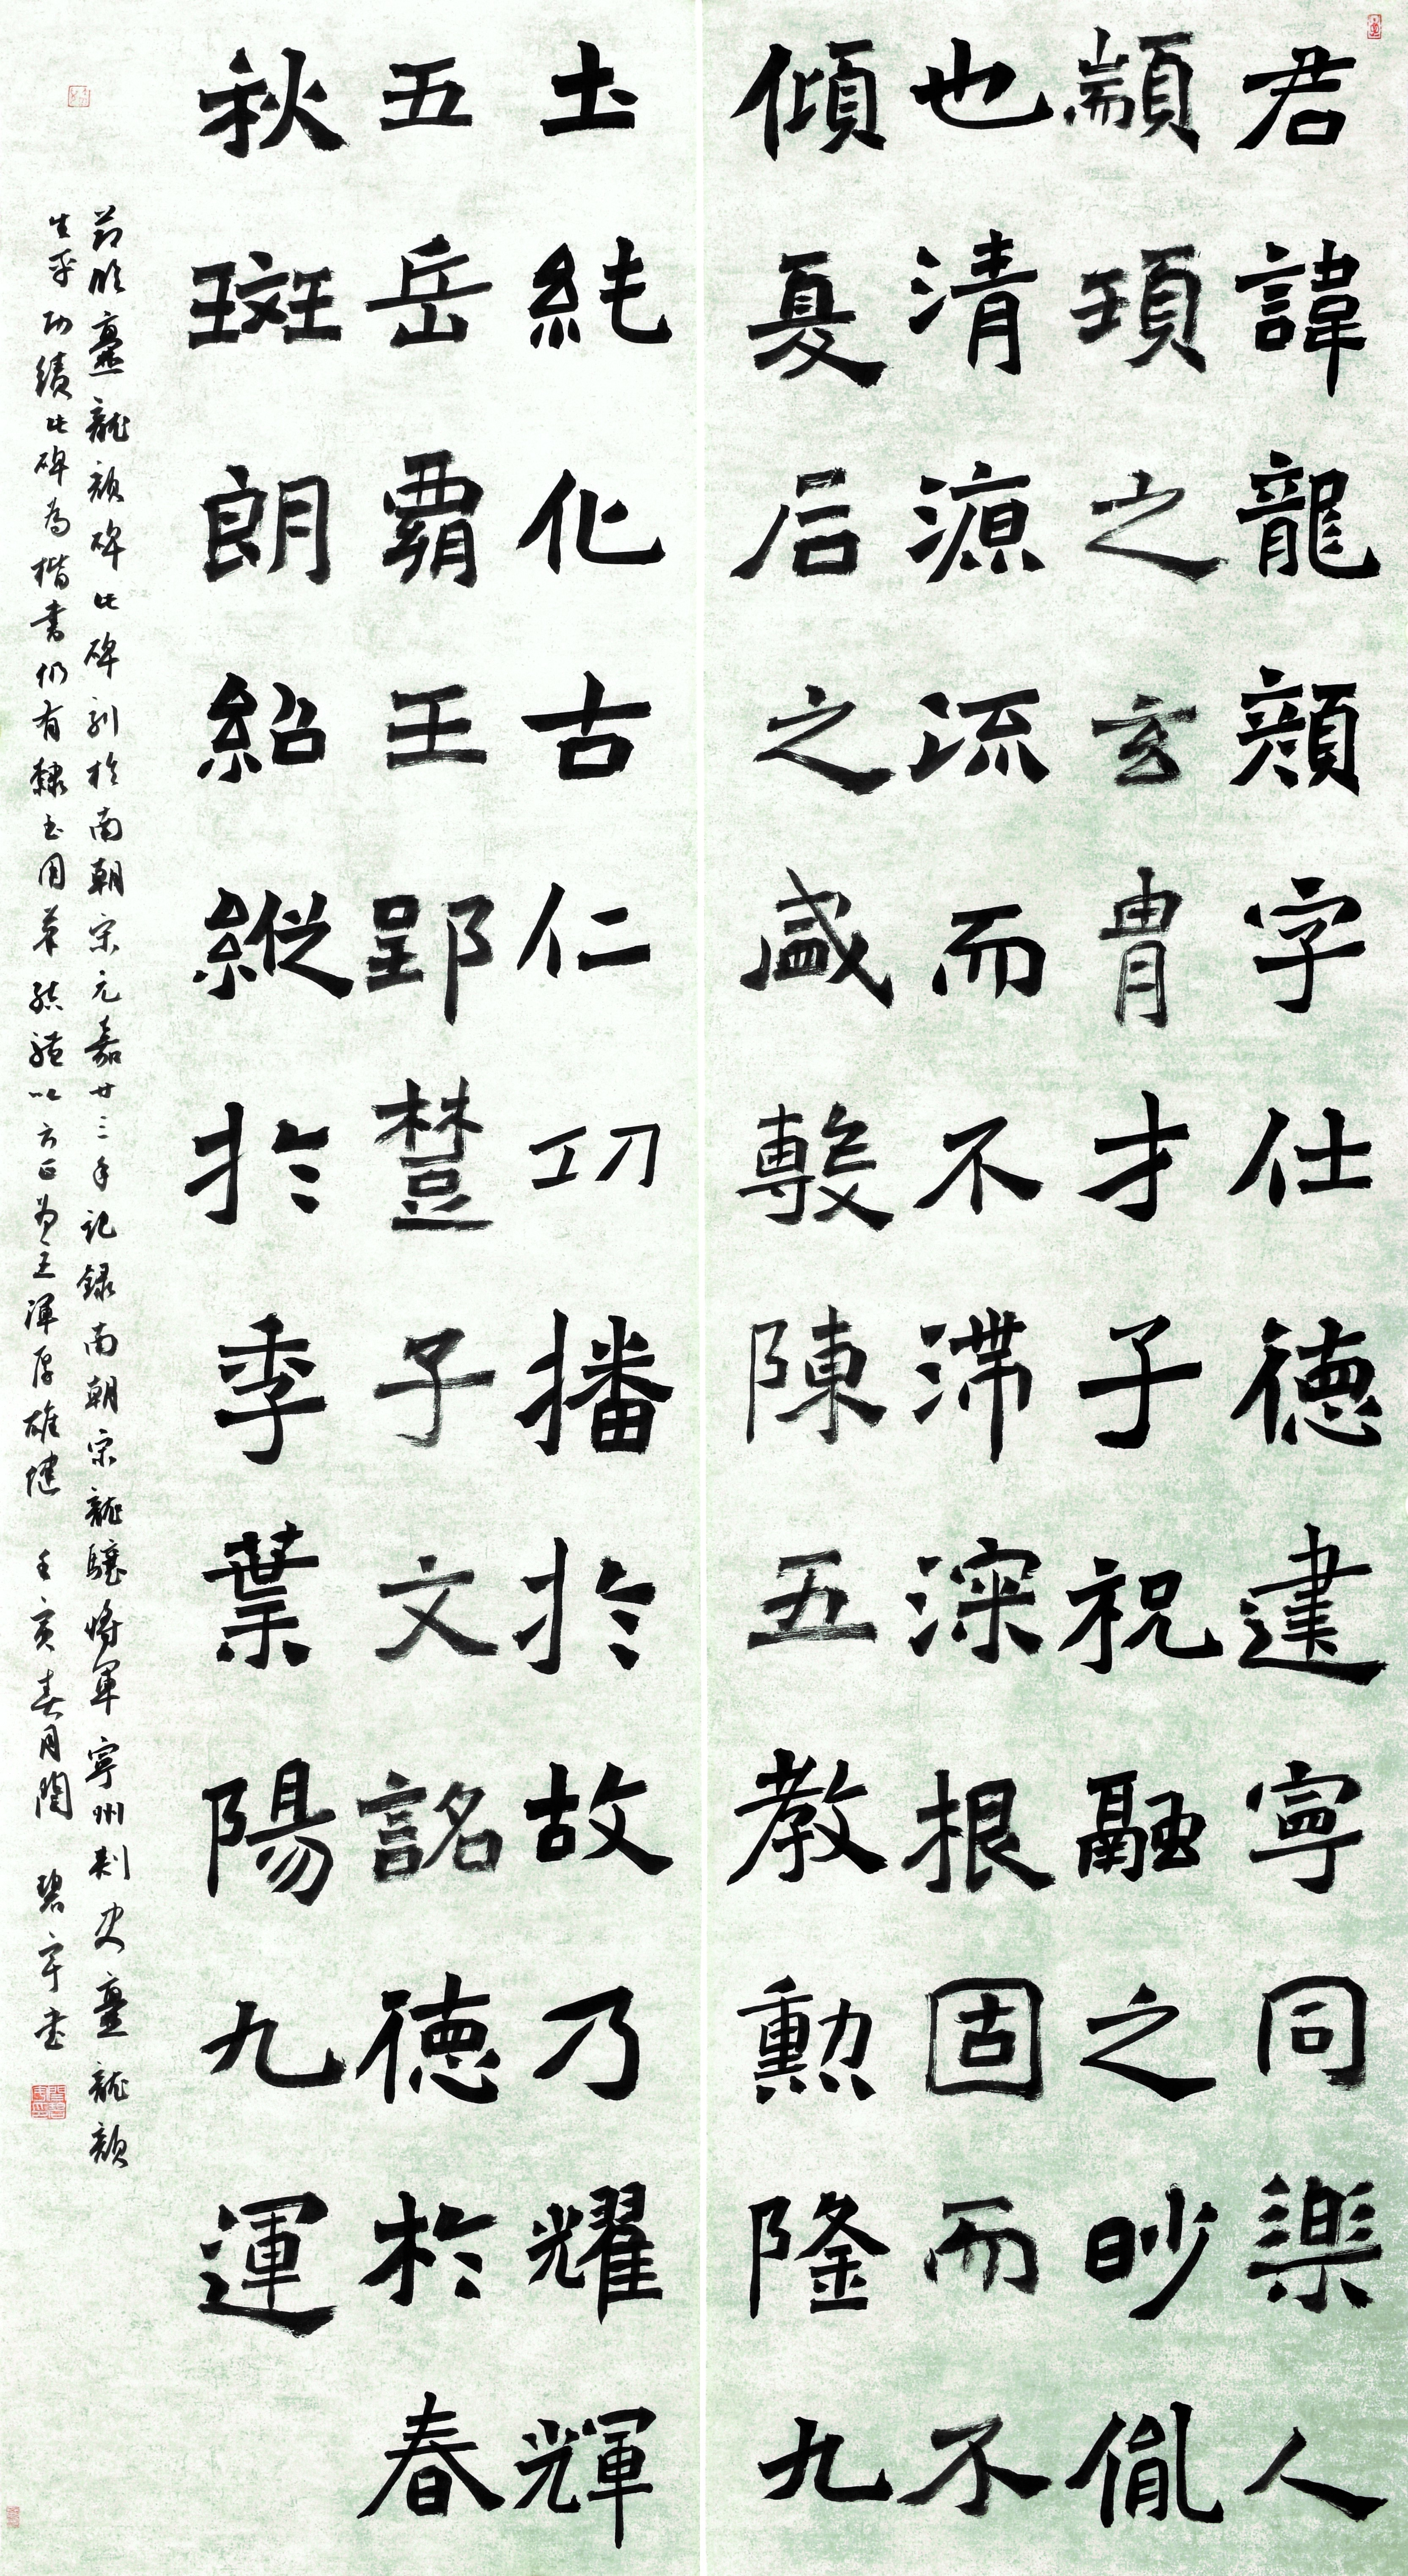 君諱龍顏字仕德建寧同樂人
顓頊之玄胄才子祝融之眇胤
也清源流而不滯深根固而不
傾夏后之盛敷陳五教勳隆九
土純化古仁功播於故乃耀輝
五岳霸王郢楚子文銘德於春
秋斑朗紹縱於季葉陽九運
節臨爨龍顏碑此碑刻於南朝宋元嘉廿三年記錄南朝宋龍驤將軍寧州刺史爨龍顏
生平功績此碑為楷書仍有隸書用筆結體以方正為主渾厚雄健 癸亥春月閆 碧宇書